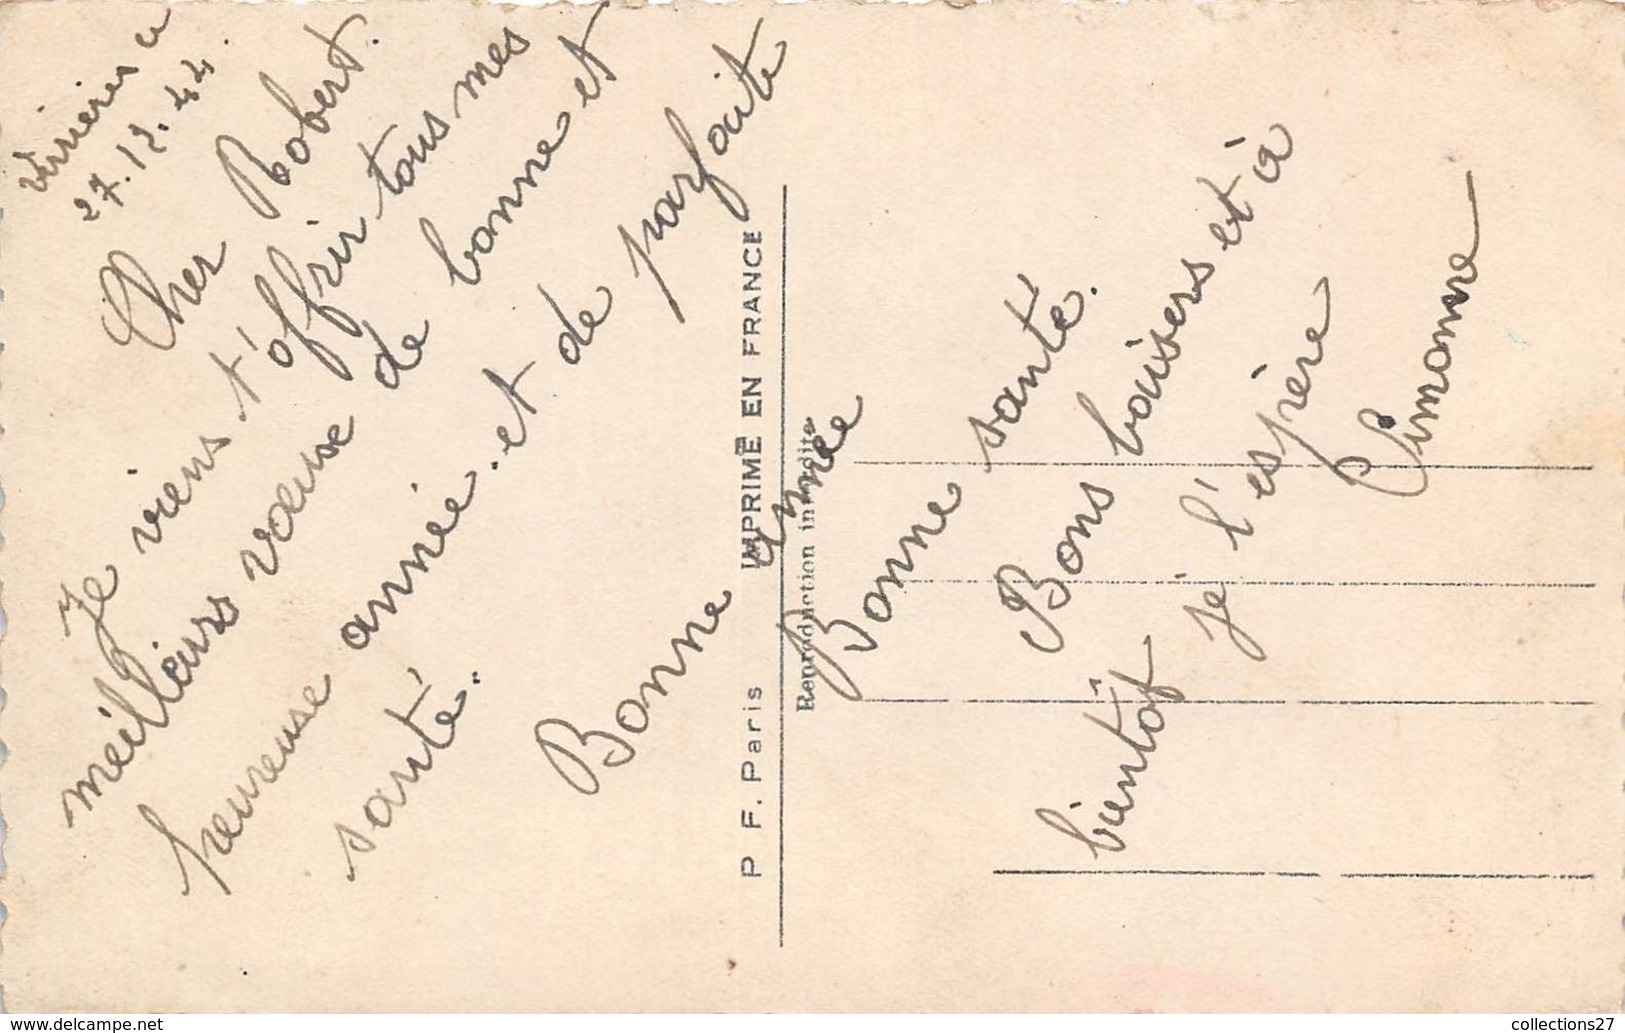 Verrières le
27.12.44.
Cher Robert.
Je viens t'offrir tous mes
meilleurs vœux de bonne et
heureuse année. et de parfaite
santé.
Bonne année
Bonne santé.
Bons baisers et à
bientôt je l'espère
Simonne
P F. Paris IMPRIMÉ EN FRANCE
Reproduction interdite
collections27